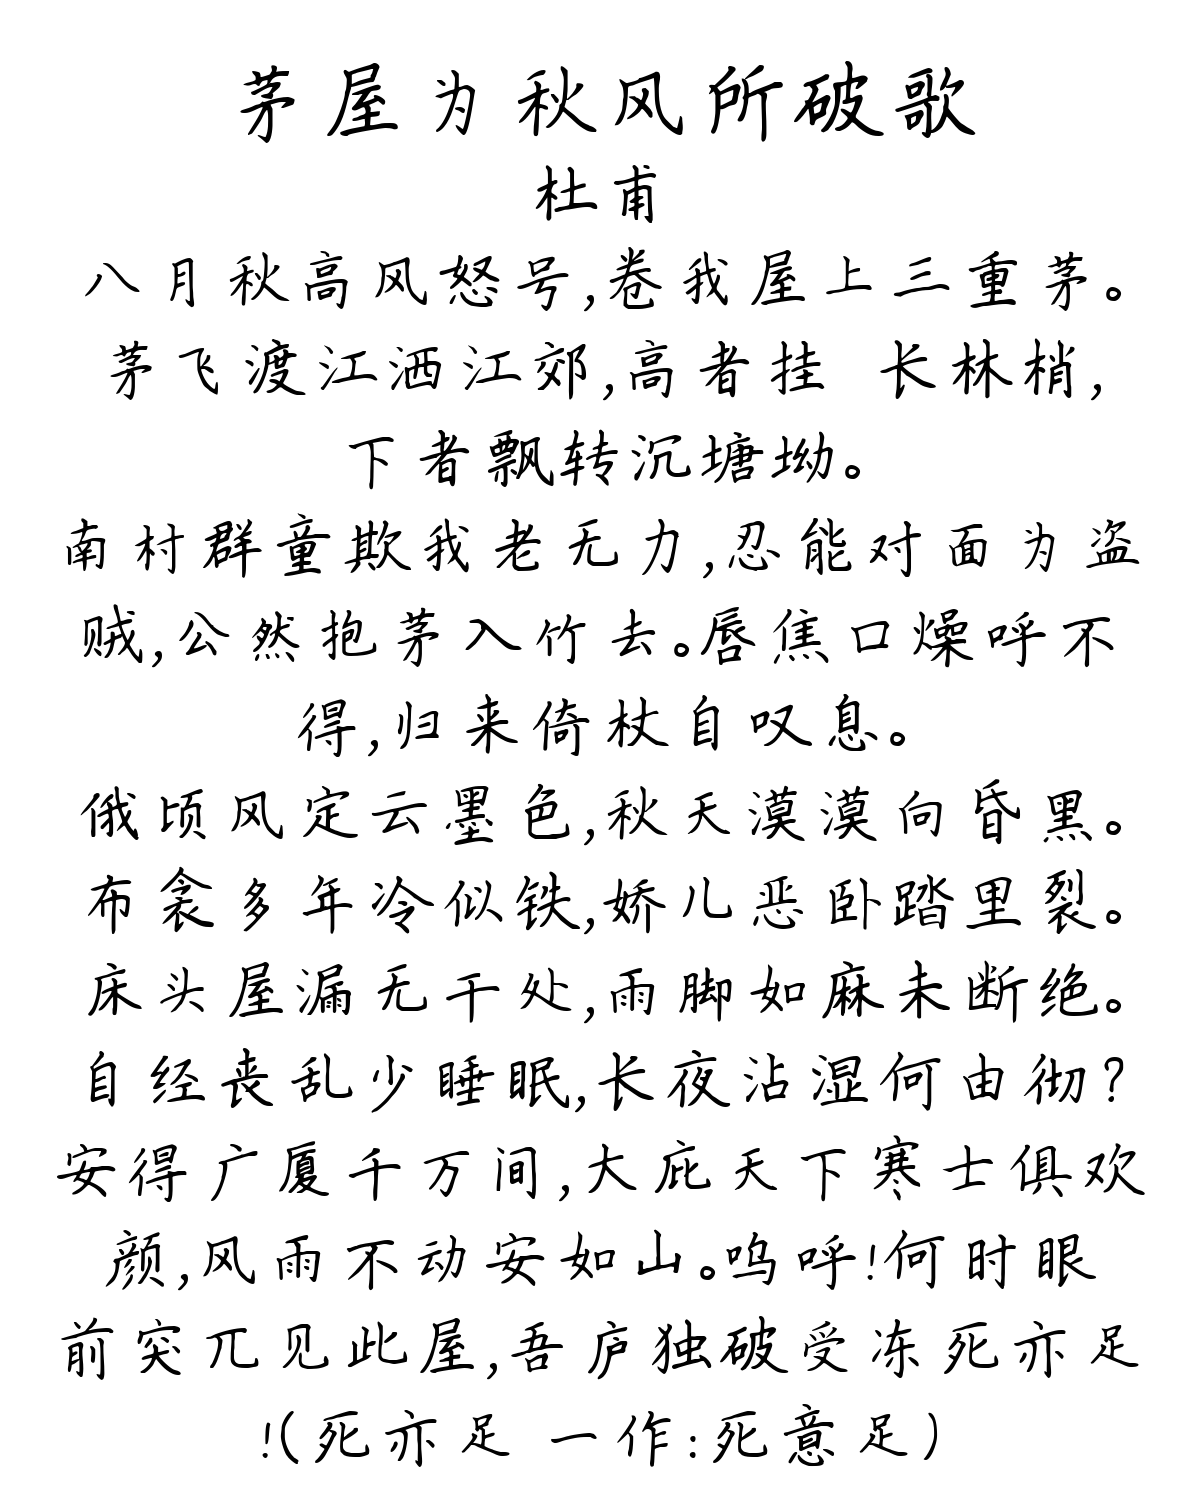 茅屋为秋风所破歌
杜甫
八月秋高风怒号,卷我屋上三重茅。
茅飞渡江洒江郊,高者挂 长林梢,
下者飘转沉塘坳。
南村群童欺我老无力,忍能对面为盗
贼,公然抱茅入竹去。唇焦口燥呼不
得,归来倚杖自叹息。
俄顷风定云墨色,秋天漠漠向昏黑。
布衾多年冷似铁,娇儿恶卧踏里裂。
床头屋漏无干处,雨脚如麻未断绝。
自经丧乱少睡眠,长夜沾湿何由彻?
安得广厦千万间,大庇天下寒士俱欢
颜,风雨不动安如山。呜呼!何时眼
前突兀见此屋,吾庐独破受冻死亦足
!(死亦足 一作:死意足)